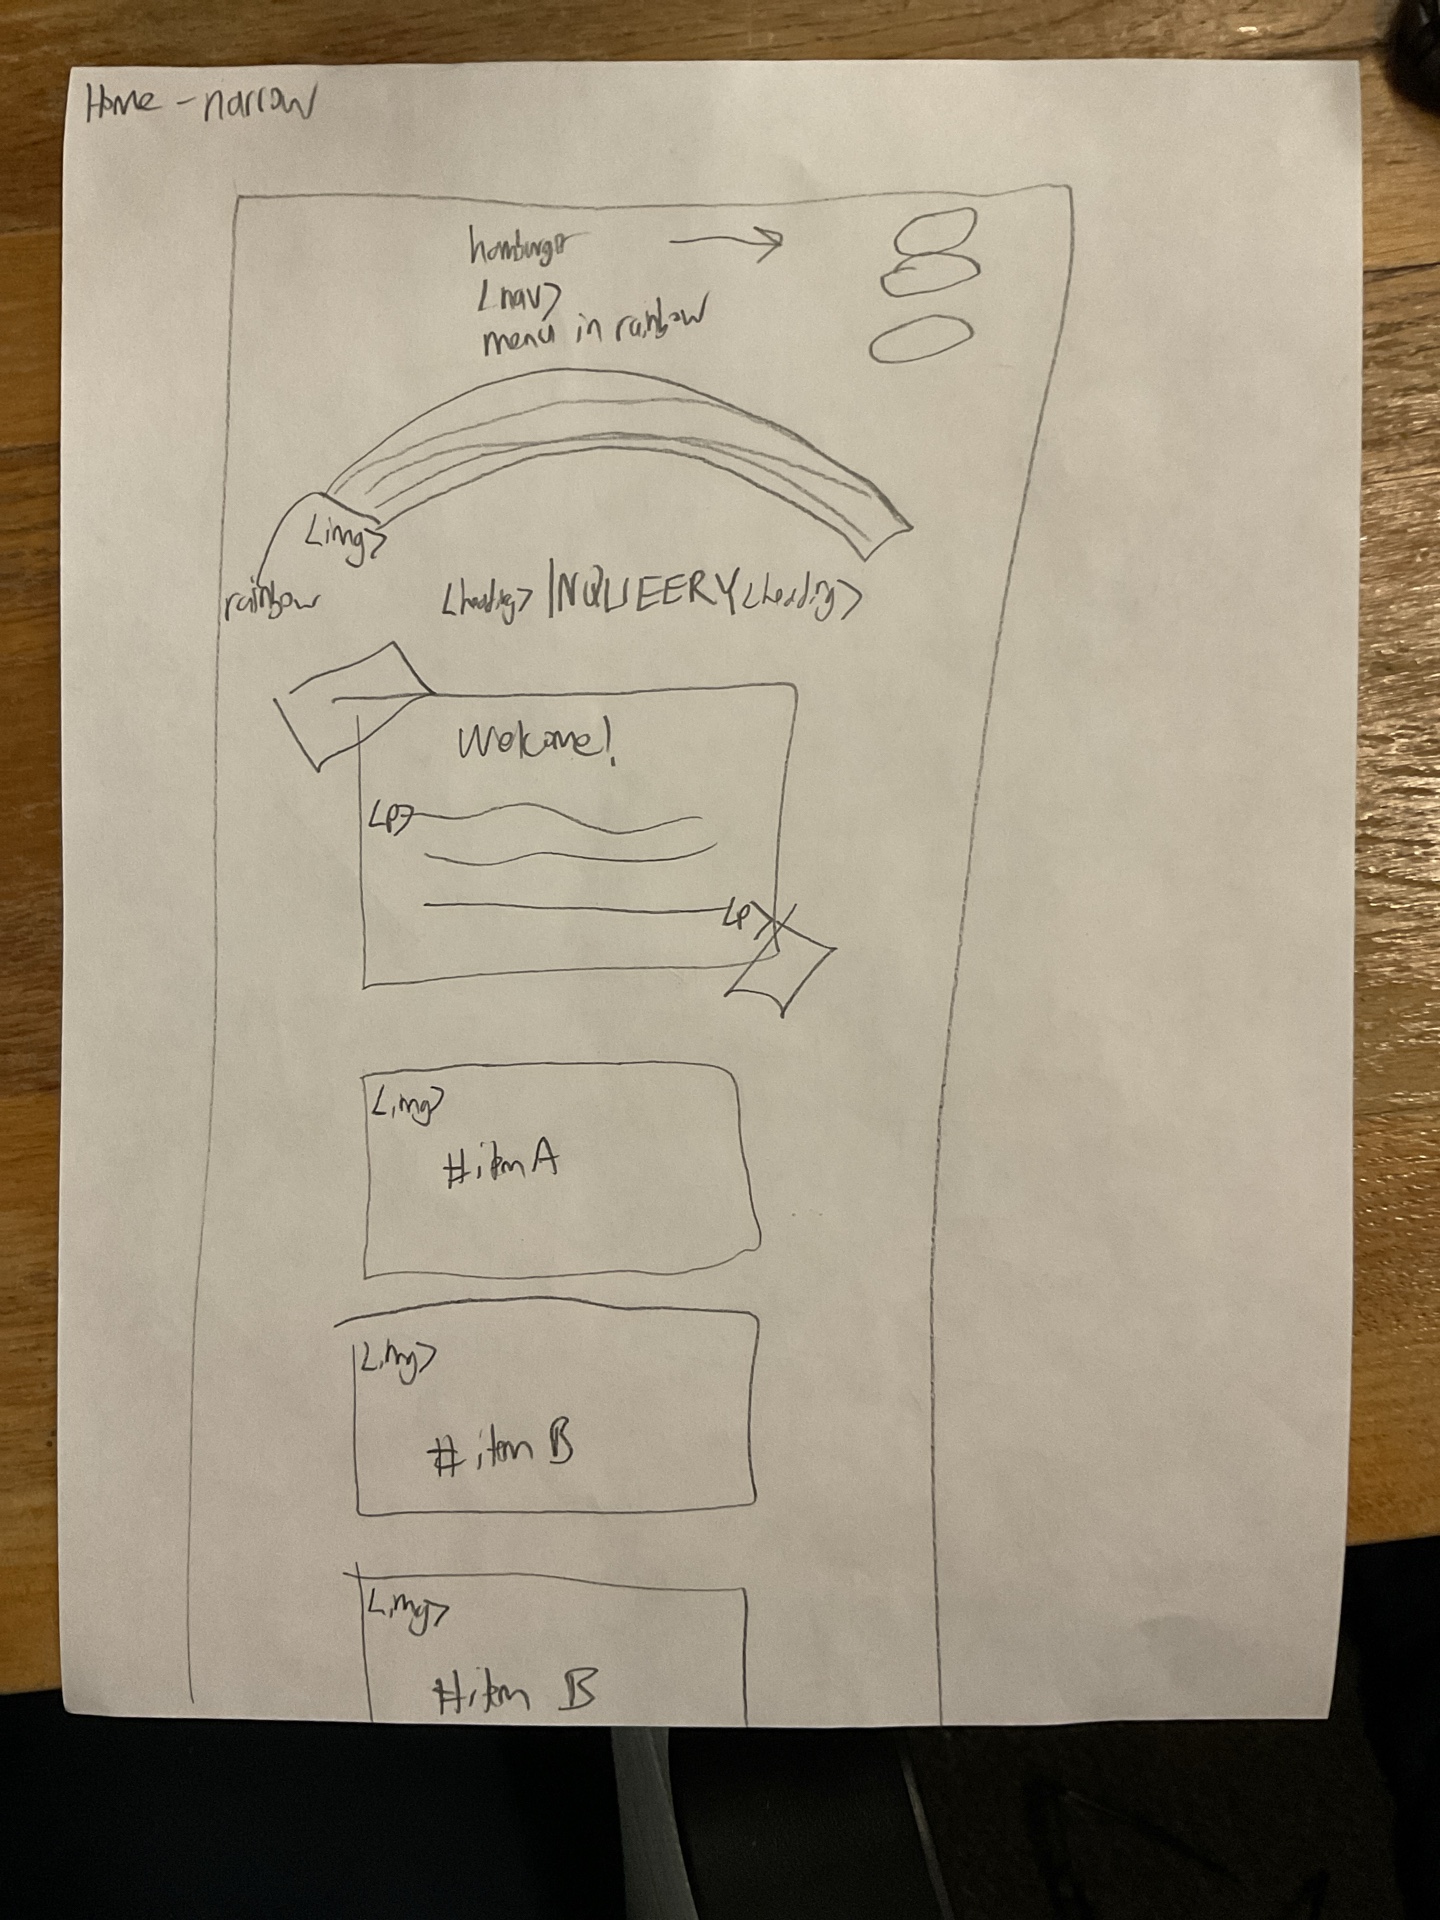 Home - narrow
hamburger
<nav>
menu in rainbow
<img>
rainbow
<heading> INQUEERY <heading>
Welcome!
<p>
<p>
<img>
#item A
<img>
#item B
<img>
#item B